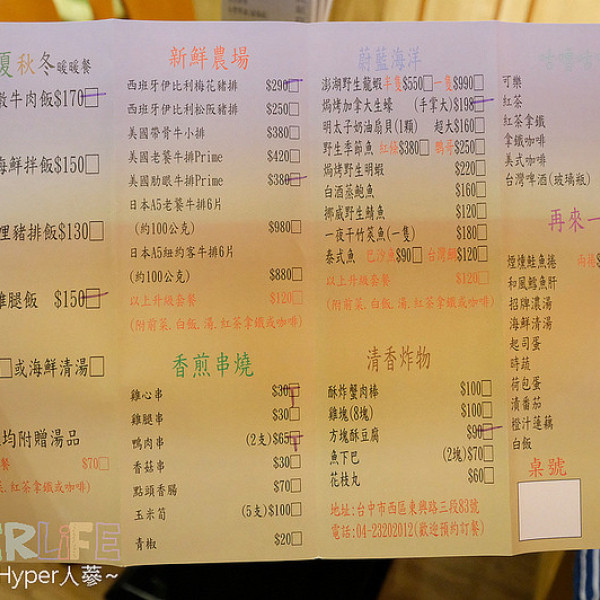 夏秋冬暖暖餐
牛肉飯$170
海鮮拌飯$150
哩豬排飯$130
雞腿飯 $150
或海鮮清湯
均附贈湯品
餐 $70
紅茶拿鐵或咖啡)
新鮮農場
西班牙伊比利梅花豬排 $290
西班牙伊比利松阪豬排 $250
美國帶骨牛小排 $380
美國老饕牛排Prime $420
美國肋眼牛排Prime $380
日本A5老饕牛排6片
(約100公克) $980
日本A5紐約客牛排6片
(約100公克) $880
以上升級套餐 $120
(附前菜.白飯.湯.紅茶拿鐵或咖啡)
香煎串燒
雞心串 $30
雞腿串 $30
鴨肉串 (2支)$65
香菇串 $30
點頭香腸 $70
玉米筍 (5支)$100
青椒 $20
蔚藍海洋
澎湖野生龍蝦半隻$550一隻$990
焗烤加拿大生蠔 (手掌大)$198
明太子奶油扇貝(1顆) 超大$160
野生季節魚 紅條$380 $250
焗烤野生明蝦 $220
白酒蒸鮑魚 $160
挪威野生鯖魚 $120
一夜干竹筴魚(一隻) $180
泰式魚 巴沙魚$90 台灣鯛$120
以上升級套餐 $120
(附前菜.白飯.湯.紅茶拿鐵或咖啡)
清香炸物
酥炸蟹肉棒 $100
雞塊(8塊) $100
方塊酥豆腐 $90
魚下巴 (2塊)$70
花枝丸 $60
地址:台中市西區東興路三段83號
電話:04-23202012(歡迎預約訂餐)
可樂
紅茶
紅茶拿鐵
拿鐵咖啡
美式咖啡
台灣啤酒(玻璃瓶)
再來一
煙燻鮭魚捲
和風鱈魚肝
招牌濃湯
海鮮清湯
起司蛋
時蔬
荷包蛋
漬番茄
橙汁蓮藕
白飯
桌號
ERLIFE
Hyper人蔘~